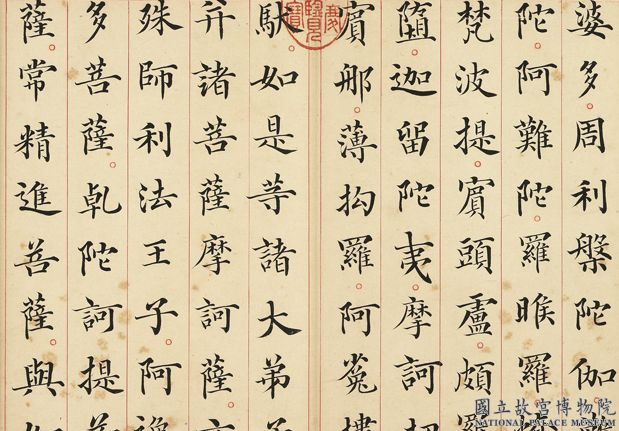 婆多。周利槃陀伽
陀。阿難陀。羅睺羅。
梵波提。賓頭盧。頗
墮。迦留陀夷。摩訶
賓那。薄拘羅。阿㝹
馱。如是等諸大弟
并諸菩薩摩訶薩。
殊師利法王子。阿
多菩薩。乾陀訶提
薩。常精進菩薩。與
國立故宮博物院
NATIONAL PALACE MUSEUM